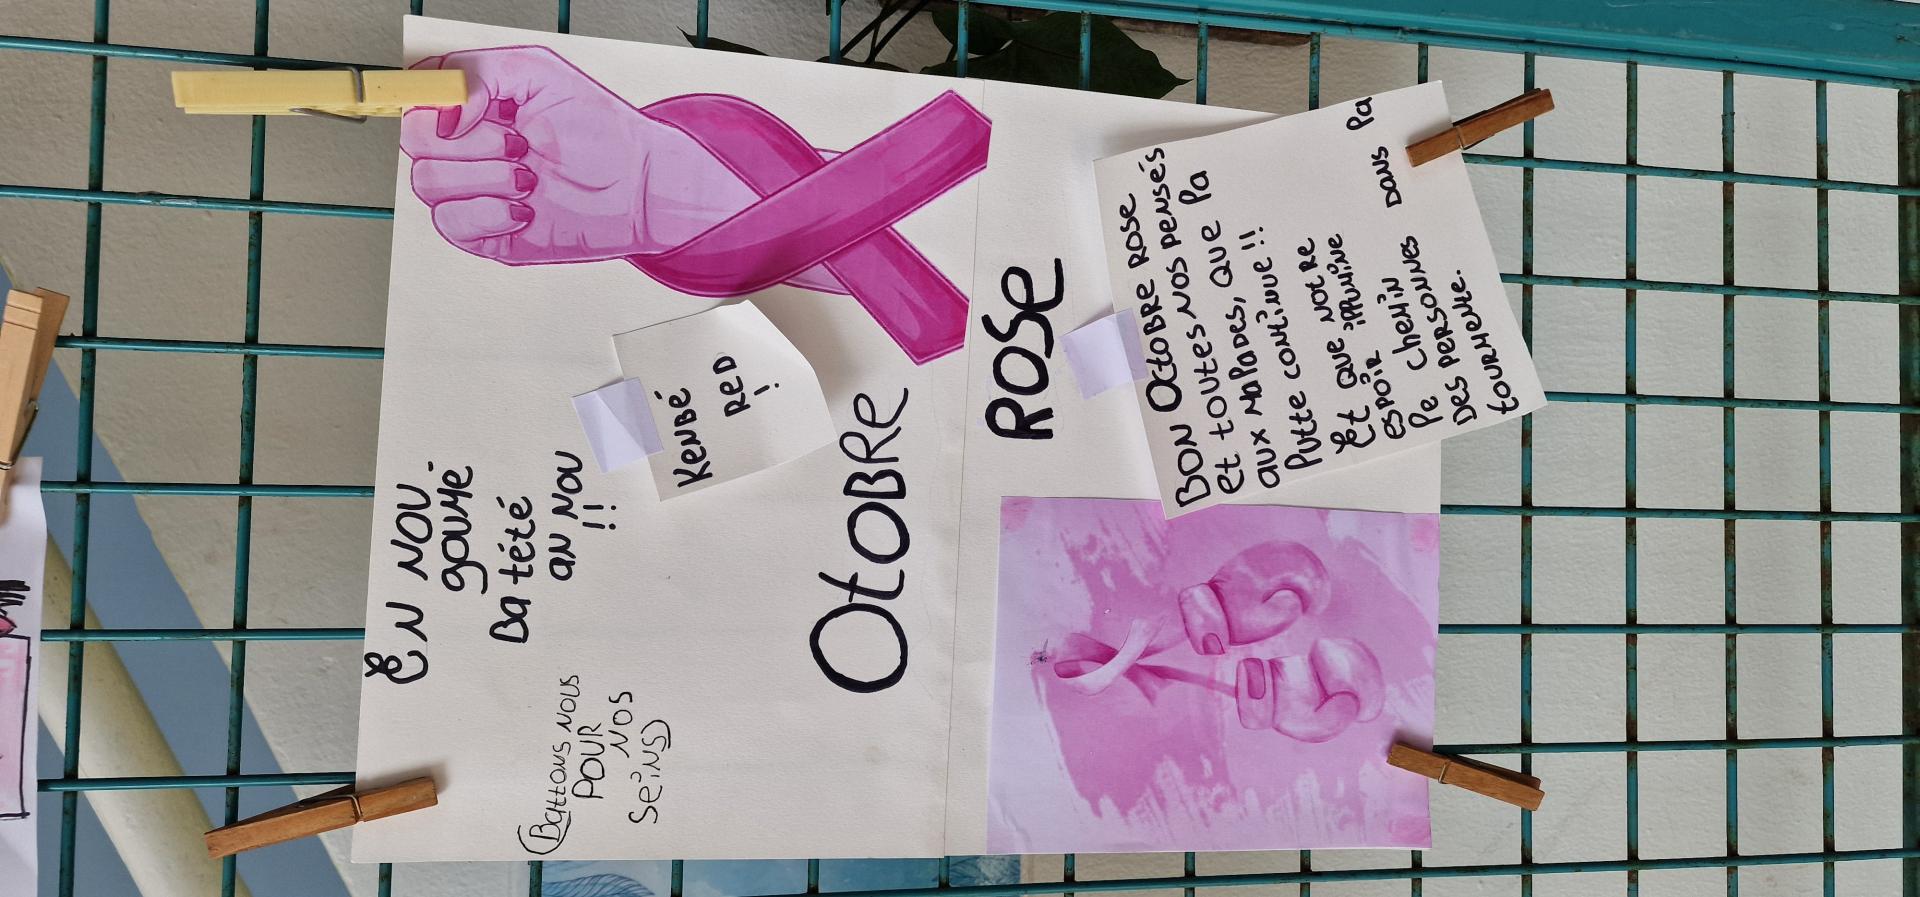 EN NOU
goumé
Ba tété
AN NOU
!!
(Battons NOUS
POUR
NOS
SEiNS)
KENBÉ
RED
!
OtOBRE
ROSE
BON OctOBRE ROSE
Et tOUtES NOS PENSÉS
AUX MAlADES, QUE la
luttE CONtiNUE !!
Et QUE NOtRE
ESPOiR illUMiNE
lE CHEMiN DANS la
DES PERSONNES
tOURMENtE.